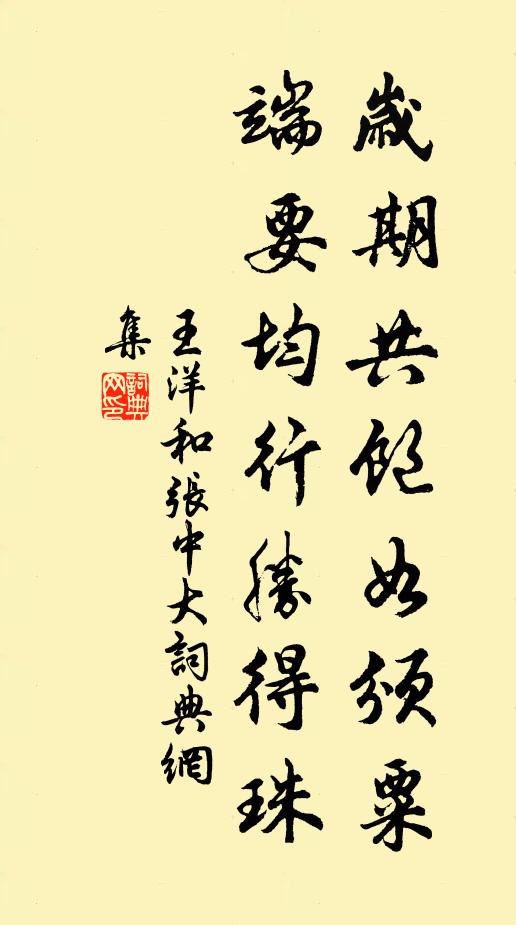 歲期共飽如頒粟
端要均行勝得珠
王洋和張中大詞典網
集
詞典
网印